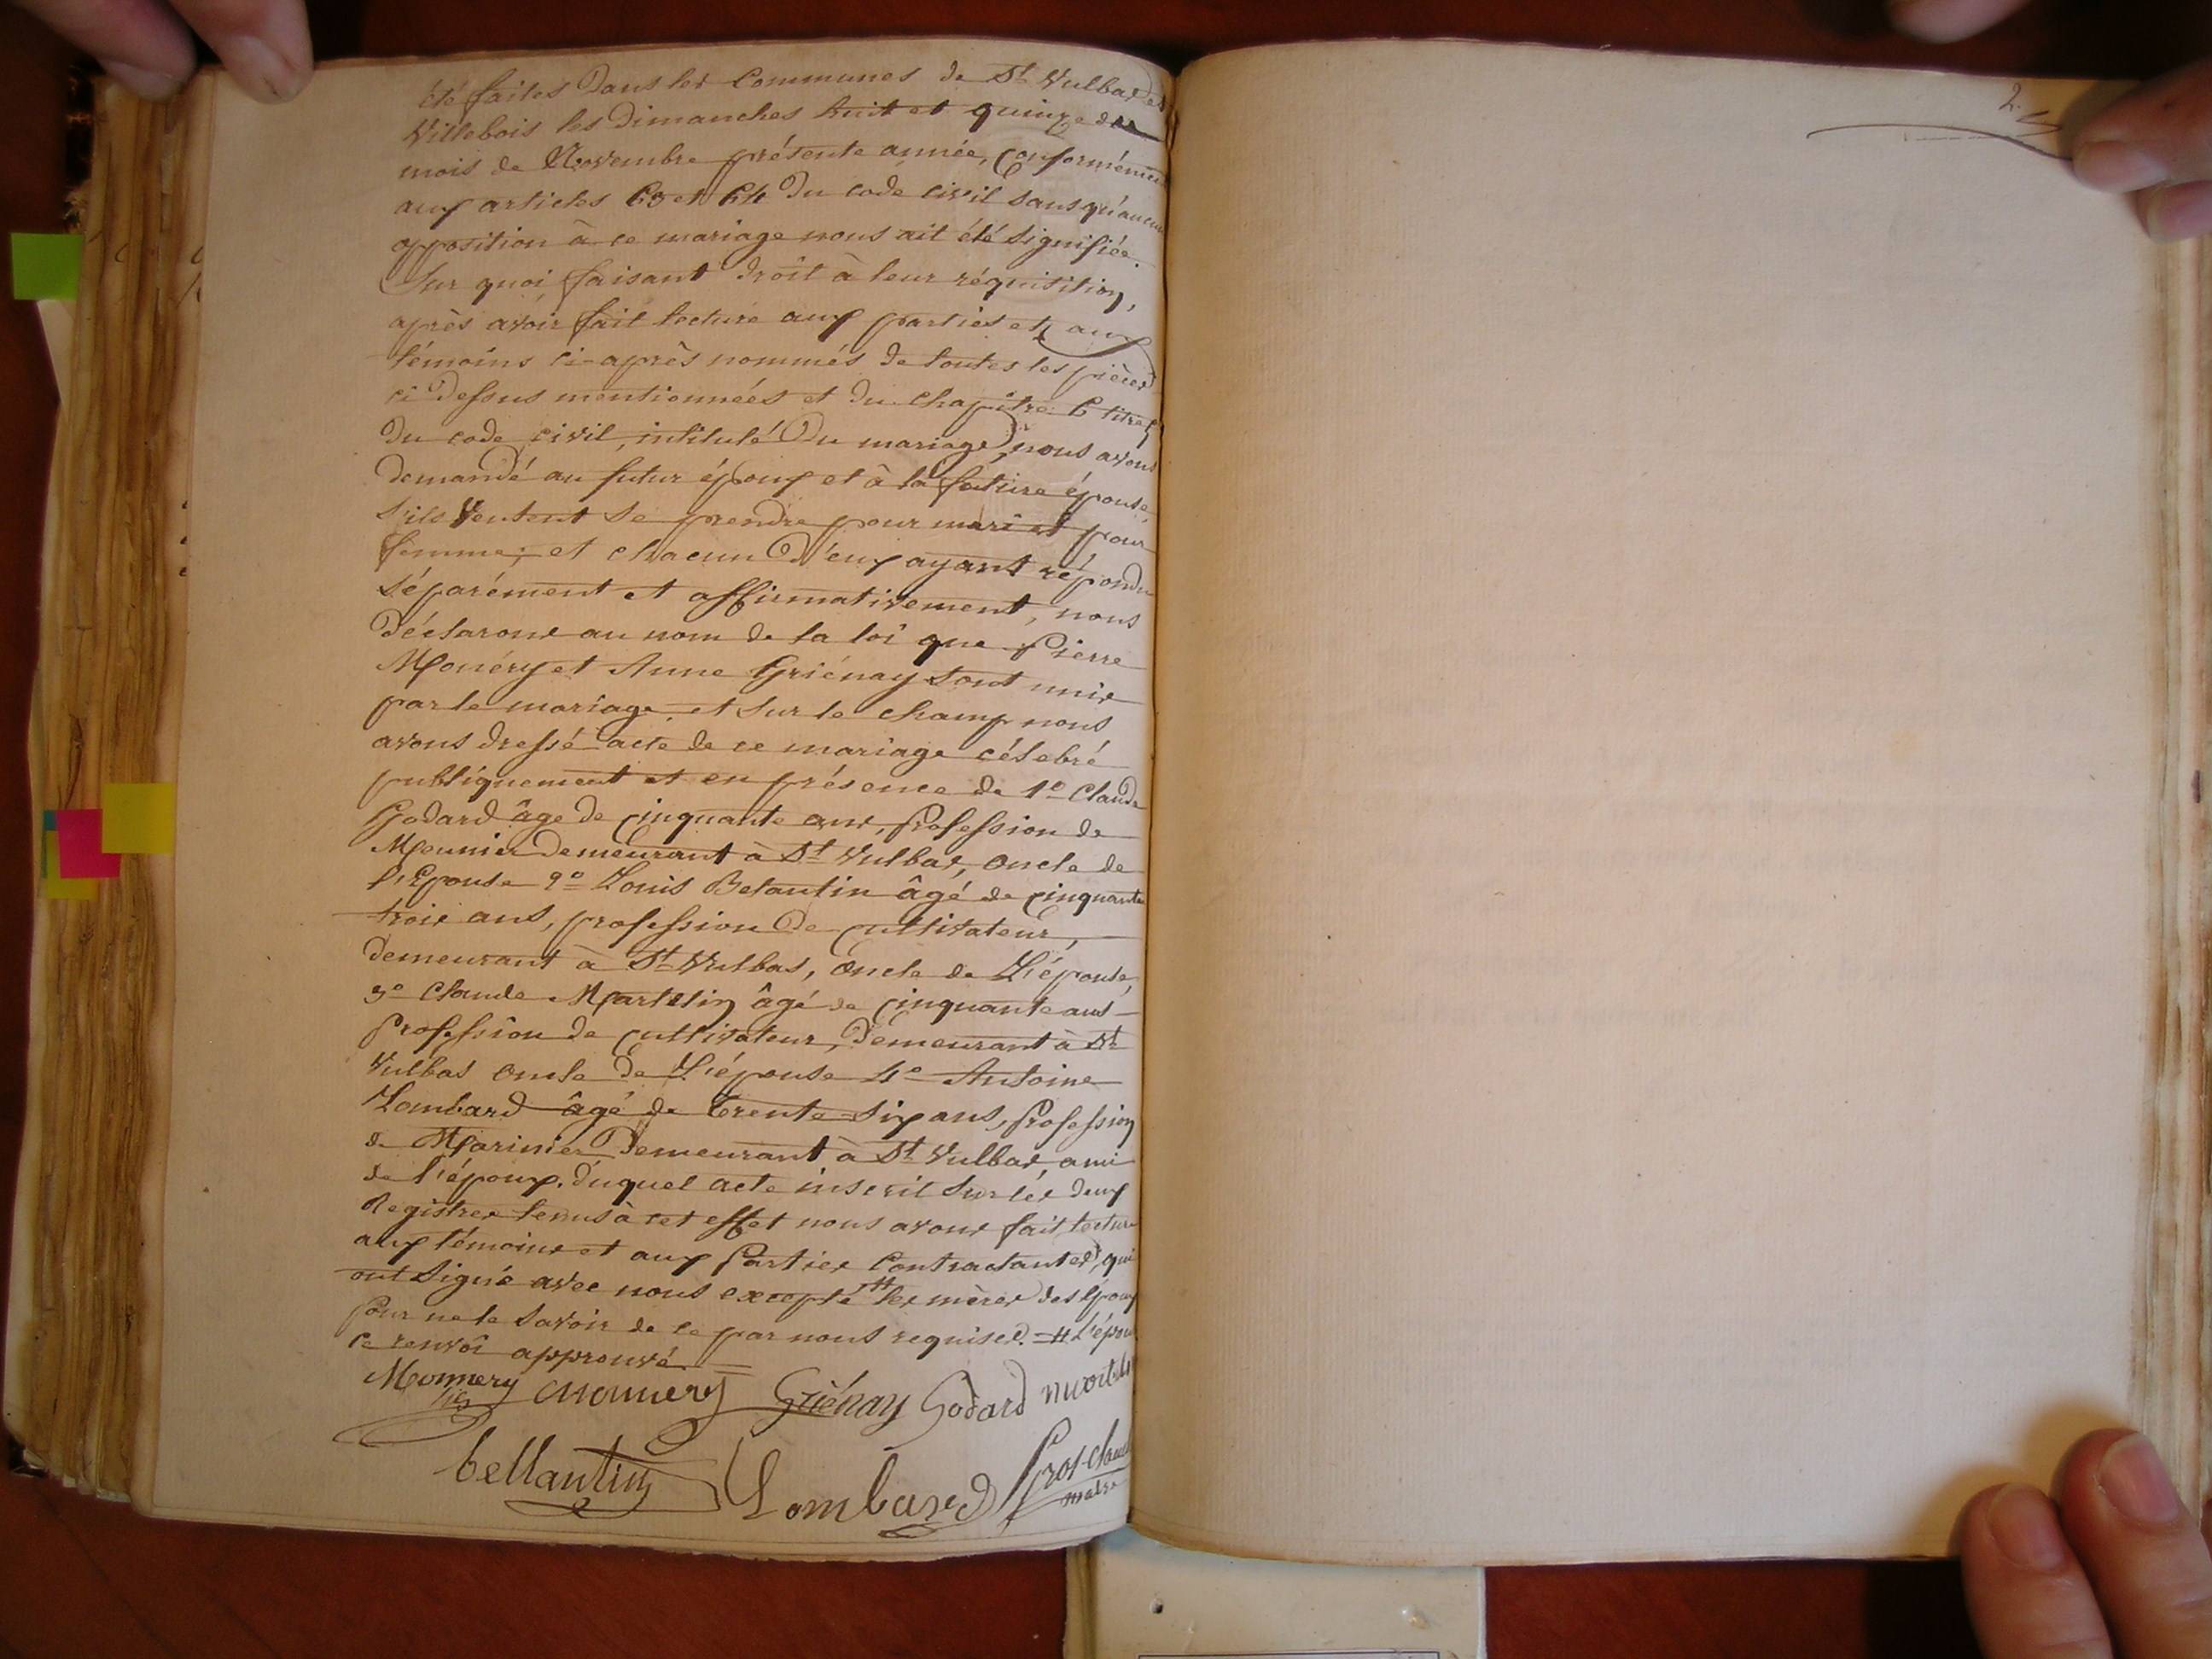 été faites dans les Communes de St Vulbas et
Villebois les dimanches huit et quinze du
mois de Novembre présente année, Conformément
aux articles 63 et 64 du code civil sans qu'aucune
opposition à ce mariage nous ait été signifiée.
Sur quoi faisant droit à leur réquisition,
après avoir fait lecture aux parties et aux
témoins ci-après nommés de toutes les pièces
ci dessus mentionnées et du chapitre 6 titre 5
du code civil, intitulé Du mariage, nous avons
demandé au futur époux et à la future épouse,
s'ils veulent se prendre pour mari et pour
femme; et chacun d'eux ayant répondu
séparément et affirmativement, nous
déclarons au nom de la loi que Pierre
Monéry et Anne Griénay sont unis
par le mariage, et sur le champ nous
avons dressé acte de ce mariage célébré
publiquement et en présence de 1o Claude
Godard âge de cinquante ans, profession de
Meunier demeurant à St Vulbas, oncle de
l'Epouse 2o Louis Belantin âgé de cinquante
trois ans, profession de cultivateur,
demeurant à St Vulbas, oncle de L'épouse,
3o Claude Martelin âgé de cinquante ans
Profession de cultivateur, demeurant à St
Vulbas oncle de L'épouse 4o Antoine
Lombard âgé de trente-six ans, Profession
de Marinier demeurant à St Vulbas, ami
de l'époux, duquel acte inscrit sur les deux
Registres tenus à cet effet nous avons fait lecture
aux témoins et aux Parties Contractantes, qui
ont signé avec nous excepté # les mères des époux
pour ne le savoir de ce par nous requises. # L'épouse
ce renvoi approuvé.
Monnery monnery Griénay Godard
bellantin Lombared Gros Claude
maire
2.